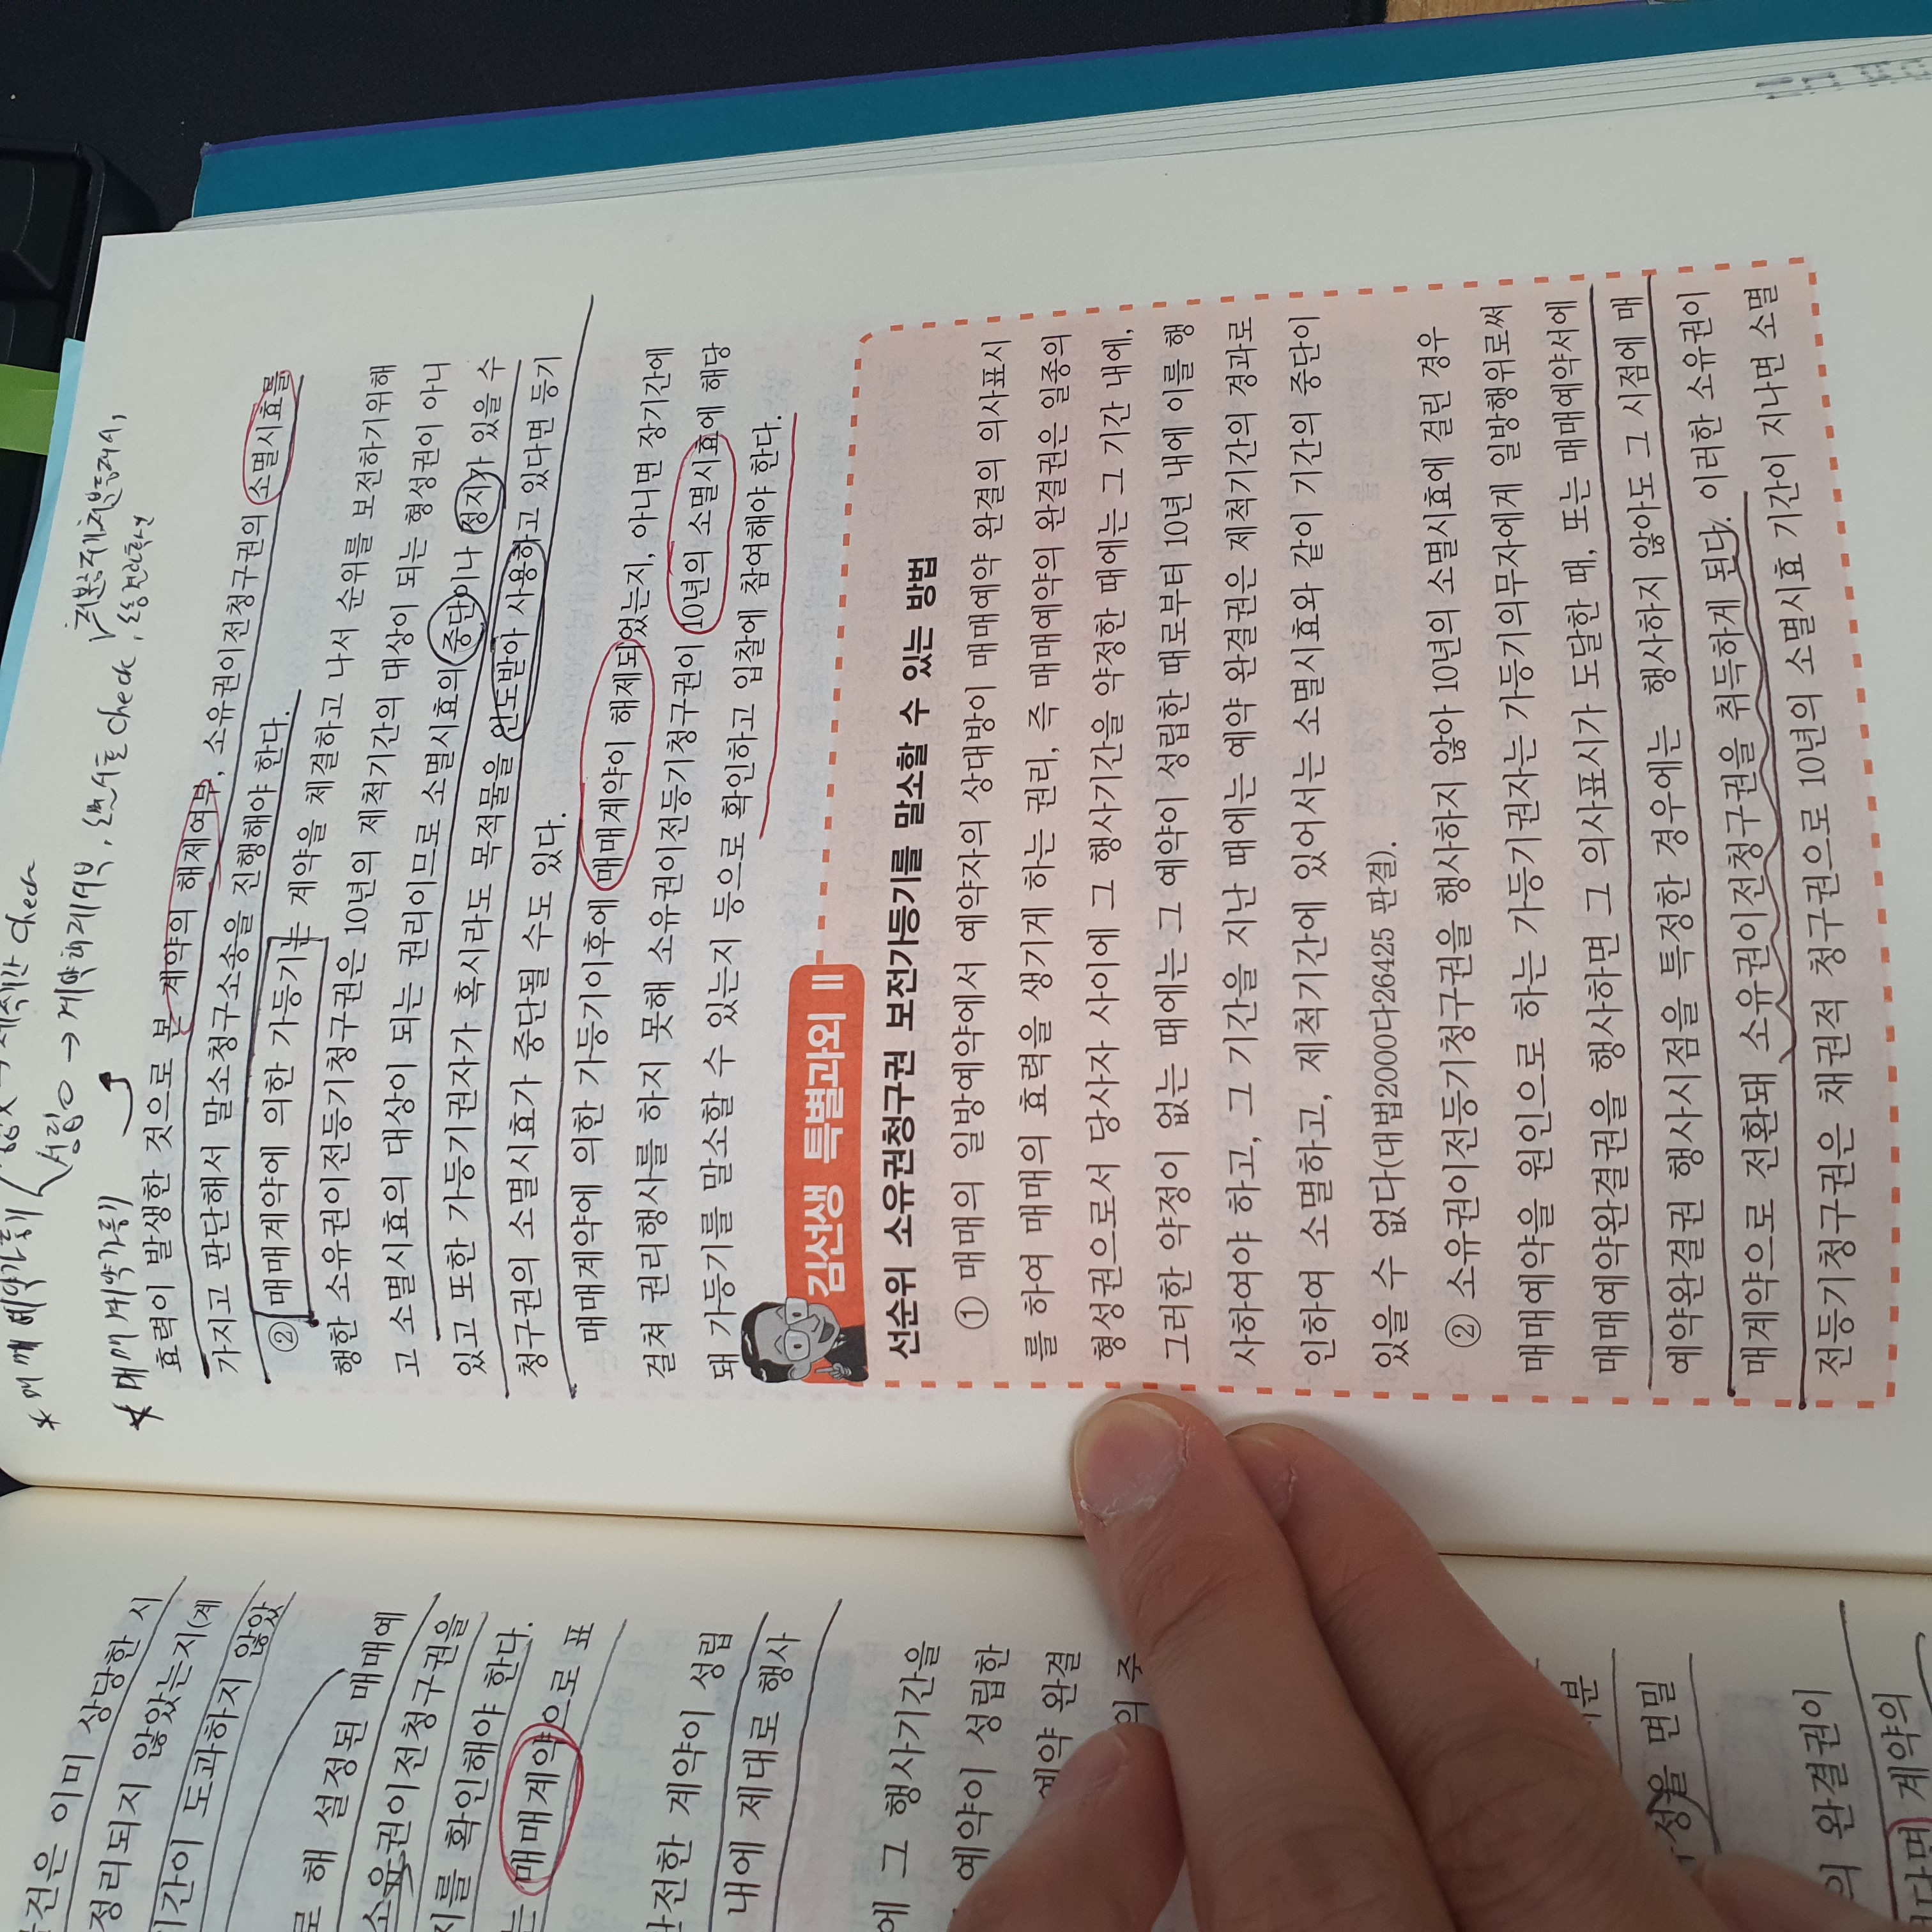 * 매매예약가등기
성립 → 계약해제여부, 소멸시효 check,
check
* 매매계약가등기
효력이 발생한 것으로 본 계약의 해제여부, 소유권이전청구권의 소멸시효를
가지고 판단해서 말소청구소송을 진행해야 한다.
② 매매계약에 의한 가등기는 계약을 체결하고 나서 순위를 보전하기 위해
행한 소유권이전등기청구권은 10년의 제척기간의 대상이 되는 형성권이 아니
고 소멸시효의 대상이 되는 권리이므로 소멸시효의 중단이나 정지가 있을 수
있고 또한 가등기권자가 혹시라도 목적물을 인도받아 사용하고 있다면 등기
청구권의 소멸시효가 중단될 수도 있다.
매매계약에 의한 가등기이후에 매매계약이 해제되었는지, 아니면 장기간에
걸쳐 권리행사를 하지 못해 소유권이전등기청구권이 10년의 소멸시효에 해당
돼 가등기를 말소할 수 있는지 등으로 확인하고 입찰에 참여해야 한다.
김선생 특별과외 II
선순위 소유권청구권 보전가등기를 말소할 수 있는 방법
① 매매의 일방예약에서 예약자의 상대방이 매매예약 완결의 의사표시
를 하여 매매의 효력을 생기게 하는 권리, 즉 매매예약의 완결권은 일종의
형성권으로서 당사자 사이에 그 행사기간을 약정한 때에는 그 기간 내에,
그러한 약정이 없는 때에는 그 예약이 성립한 때로부터 10년 내에 이를 행
사하여야 하고, 그 기간을 지난 때에는 예약 완결권은 제척기간의 경과로
인하여 소멸하고, 제척기간에 있어서는 소멸시효와 같이 기간의 중단이
있을 수 없다(대법2000다26425 판결).
② 소유권이전등기청구권을 행사하지 않아 10년의 소멸시효에 걸린 경우
매매예약을 원인으로 하는 가등기권자는 가등기의무자에게 일방행위로써
매매예약완결권을 행사하면 그 의사표시가 도달한 때, 또는 매매예약서에
예약완결권 행사시점을 특정한 경우에는 행사하지 않아도 그 시점에 매
매계약으로 전환돼 소유권이전청구권을 취득하게 된다. 이러한 소유권이
전등기청구권은 채권적 청구권으로 10년의 소멸시효 기간이 지나면 소멸
건은 이미 상당한 시
정리되지 않았는지(계
기간이 도과하지 않았
로 해 설정된 매매예
소유권이전청구권을
시를 확인해야 한다.
는 매매계약으로 표
전한 계약이 성립
내에 제대로 행사
에 그 행사기간을
예약이 성립한
예약 완결
의 주
분
성을 면밀
의 완결권이
다면 계약의